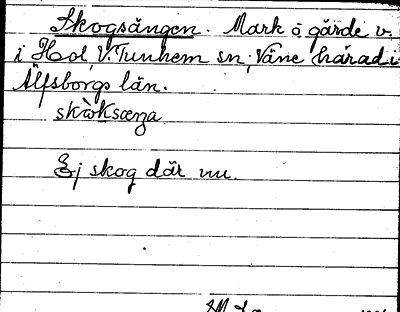 Skogsängen. Mark o gärde v.
i Hol, V. Tunhem sn, Väne härad i
Älfsborgs län.
skòksæŋa
Ej skog där nu.